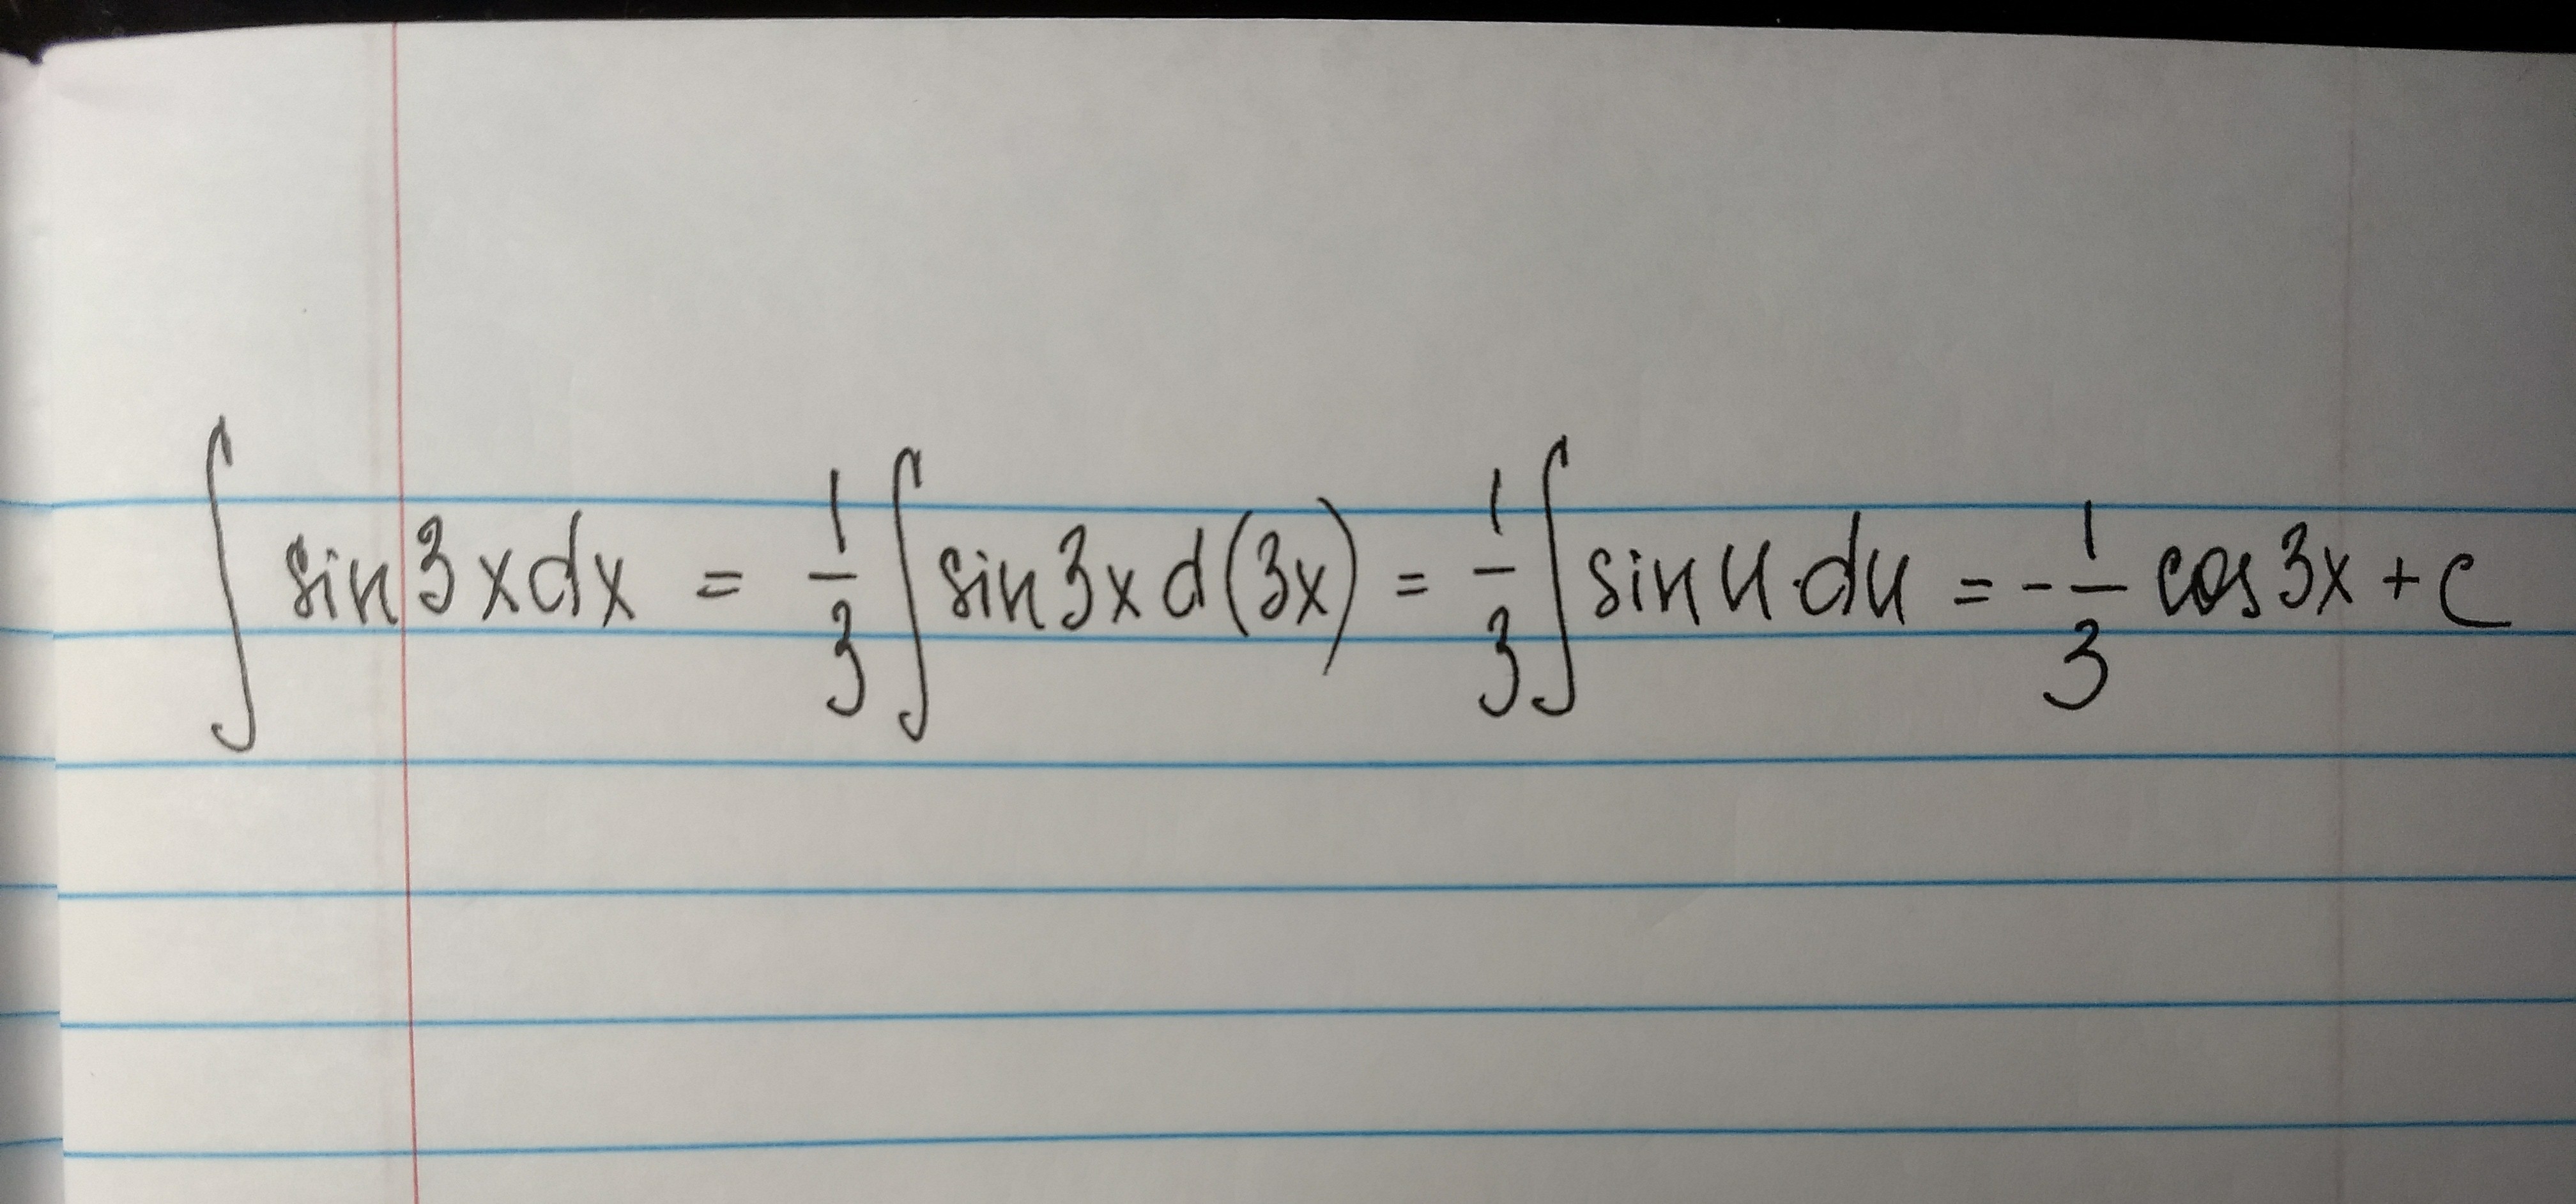 ∫ sin 3x dx = 1/3 ∫ sin 3x d(3x) = 1/3 ∫ sin u · du = - 1/3 cos 3x + C